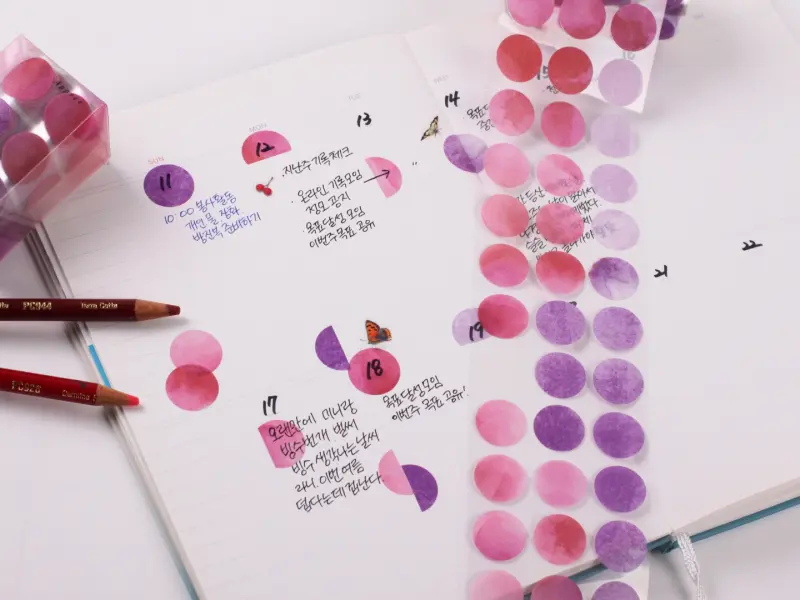 SUN
MON
TUE
11
12
13
14
15
10:00 봉사활동
개인 물, 장화
방진복 준비하기
·지난주 기록 체크
·온라인 기록모임
정모 공지
·목표달성 모임
이번주 목표 공유
목표달
PC944
Terra Cotta
17
18
19
21
22
오랜만에 미니랑
빙수번개 벌써
빙수 생각나는 날씨
라니. 이번 여름
덥다는데 겁난다.
목표달성 모임
이번주 목표 공유!